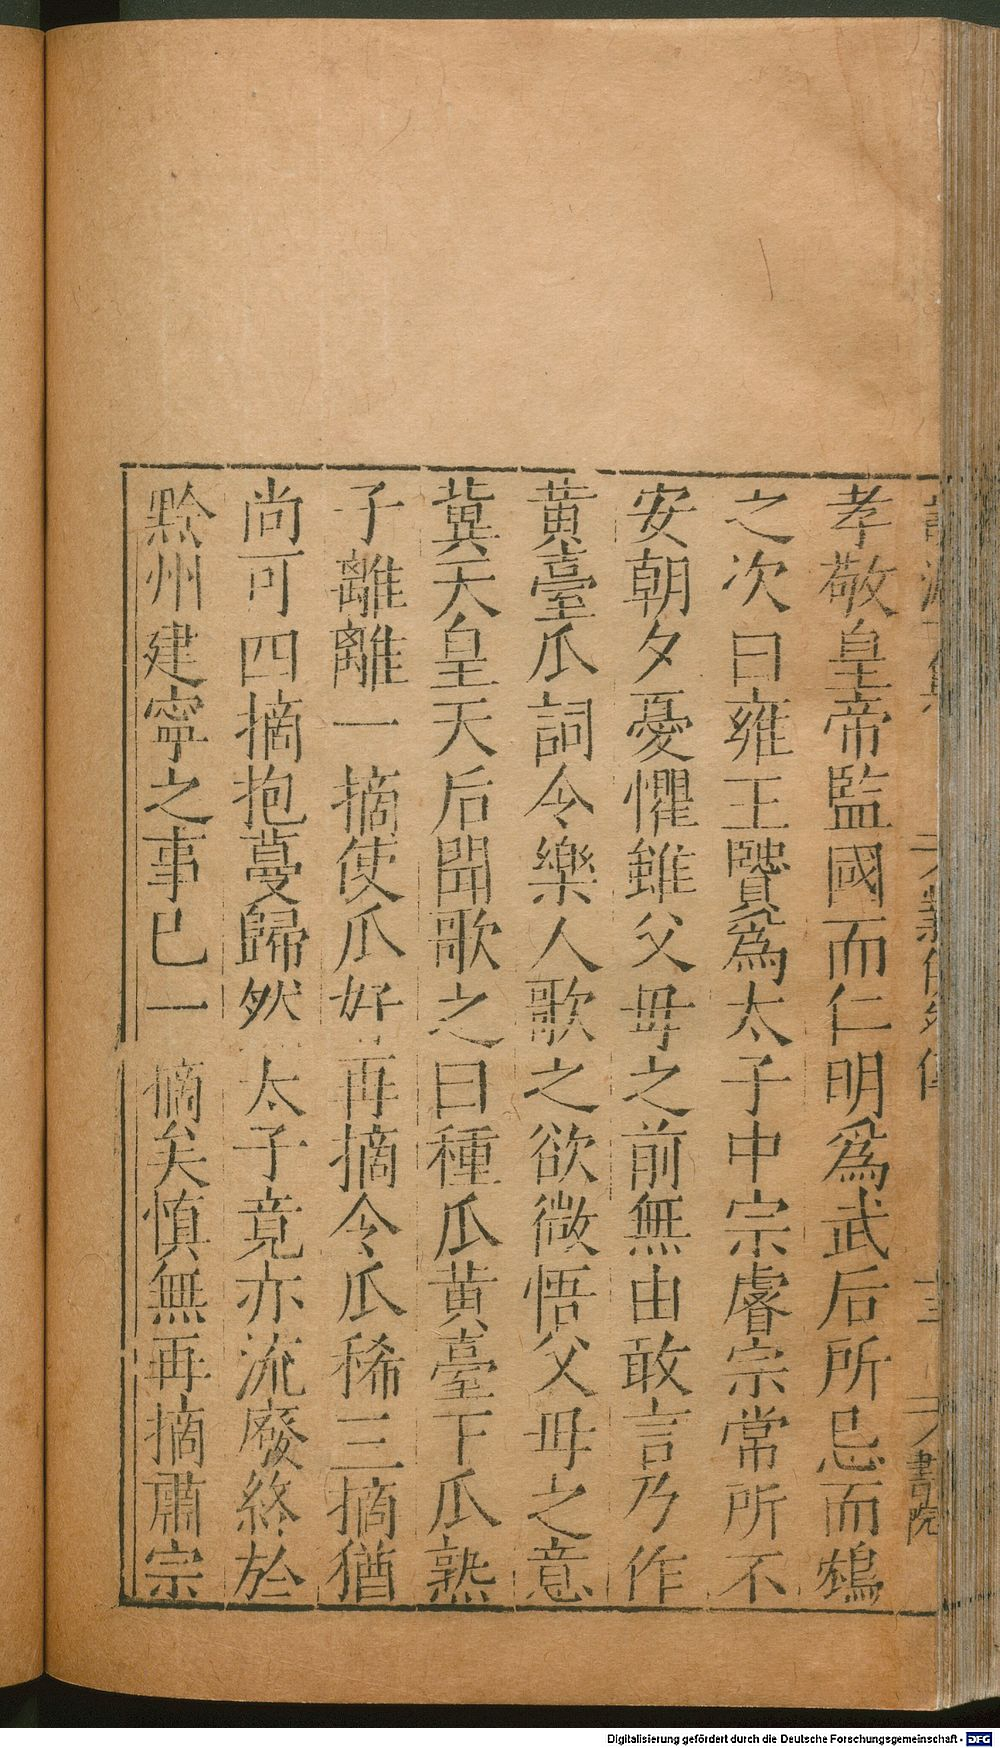 孝敬皇帝監國而仁明爲武后所忌而鴆
之次曰雍王贒爲太子中宗睿宗常所不
安朝夕憂懼雖父毋之前無由敢言乃作
黄臺瓜詞令樂人歌之欲微悟父毋之意
冀天皇天后聞歌之曰種瓜黄臺下瓜熟
子離離一摘使瓜好再摘令瓜稀三摘猶
尚可四摘抱蔓歸然太子竟亦流廢終於
黔州建寧之事已一摘矣慎無再摘肅宗
書院
Digitalisierung gefördert durch die Deutsche Forschungsgemeinschaft - DFG